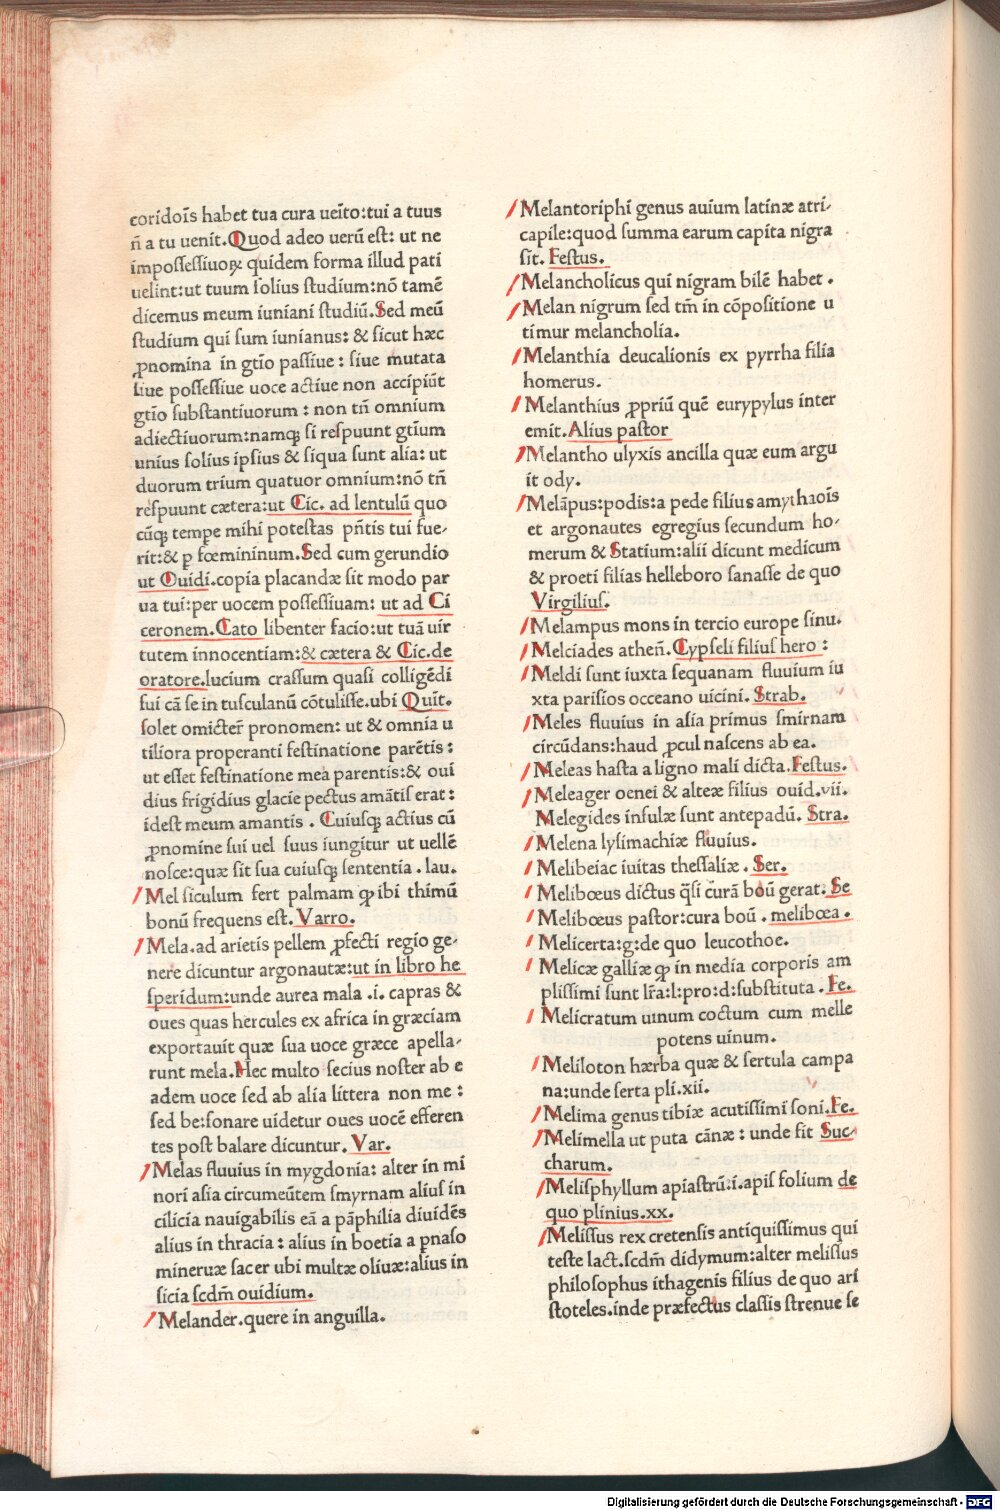 coridoīs habet tua cura ueīto:tui a tuus
n̄ a tu uenit.Quod adeo uerū est: ut ne
impossessiuoꝝ quidem forma illud pati
uelint:ut tuum solius studium:nō tamē
dicemus meum iuniani studiū.Sed meū
studium qui sum iunianus: & sicut hæc
ꝓnomina in gtīo passiue: siue mutata
siue possessiue uoce actiue non accipiūt
gtīo substantiuorum: non tn̄ omnium
adiectiuorum:namqꝫ si respuunt gtīum
unius solius ipsius & siqua sunt alia: ut
duorum trium quatuor omnium:nō tn̄
respuunt cætera:ut Cic. ad lentulū quo
cūqꝫ tempe mihi potestas pn̄tis tui fue-
rit:& ꝑ fœmininum.Sed cum gerundio
ut Ouidi.copia placandæ sit modo par
ua tui:per uocem possessiuam: ut ad Ci
ceronem.Cato libenter facio:ut tuā uir
tutem innocentiam:& cætera & Cic.de
oratore.lucium crassum quasi colligēdi
sui cā se in tusculanū cōtulisse.ubi Quit.
solet omicter̄ pronomen: ut & omnia u
tiliora properanti festinatione parētis:
ut esset festinatione mea parentis:& oui
dius frigidius glacie pectus amātis erat:
idest meum amantis . Cuiusqꝫ actius cū
ꝓnomine sui uel suus iungitur ut uellē
nosce:quæ sit sua cuiusqꝫ sententia . lau.
Mel siculum fert palmam ꝙ ibi thimū
bonū frequens est. Varro.
Mela.ad arietis pellem ꝓfecti regio ge-
nere dicuntur argonautæ:ut in libro he
speridum:unde aurea mala .i. capras &
oues quas hercules ex africa in græciam
exportauit quæ sua uoce græce apella-
runt mela.Nec multo secius noster ab e
adem uoce sed ab alia littera non me:
sed be:sonare uidetur oues uocē efferen
tes post balare dicuntur. Var.
Melas fluuius in mygdonia: alter in mi
nori asia circumeūtem smyrnam alius in
cilicia nauigabilis eā a pāphilia diuidēs
alius in thracia: alius in boetia a pnaso
mineruæ sacer ubi multæ oliuæ:alius in
sicia scdm̄ ouidium.
Melander.quere in anguilla.
Melantoriphi genus auium latinæ atri-
capile:quod summa earum capita nigra
sit. Festus.
Melancholicus qui nigram bilē habet .
Melan nigrum sed tm̄ in cōpositione u
timur melancholia.
Melanthia deucalionis ex pyrrha filia
homerus.
Melanthius ꝓpriū quē eurypylus inter
emit.Alius pastor
Melantho ulyxis ancilla quæ eum argu
it ody.
Melāpus:podis:a pede filius amythaoīs
et argonautes egregius secundum ho-
merum & Statium:alii dicunt medicum
& proeti filias helleboro sanasse de quo
Virgilius.
Melampus mons in tercio europe sinu.
Melciades athen̄. Cypseli filius hero :
Meldi sunt iuxta sequanam fluuium iu
xta parisios occeano uicini. Strab.
Meles fluuius in asia primus smirnam
circūdans:haud ꝓcul nascens ab ea.
Meleas hasta a ligno mali dicta.Festus.
Meleager oenei & alteæ filius ouid.vii.
Melegides insulæ sunt antepadū. Stra.
Melena lysimachiæ fluuius.
Melibeiac iuitas thessaliæ . Ser.
Melibœus dictus q̄si curā boū gerat. Se
Melibœus pastor:cura boū . melibœa .
Melicerta:g:de quo leucothoe.
Melicæ galliæ ꝙ in media corporis am
plissimi sunt lr̄a:l:pro:d:substituta . Fe.
Melicratum uinum coctum cum melle
potens uinum.
Meliloton hærba quæ & sertula campa
na:unde serta pli.xii.
Melima genus tibiæ acutissimi soni.Fe.
Melimella ut puta cānæ: unde fit Suc-
charum.
Melisphyllum apiastrū:i.apis folium de
quo plinius.xx.
Melissus rex cretensis antiquissimus qui
teste lact.scdm̄ didymum:alter melissus
philosophus ithagenis filius de quo ari
stoteles.inde præfectus classis strenue se
Digitalisierung gefördert durch die Deutsche Forschungsgemeinschaft - DFG